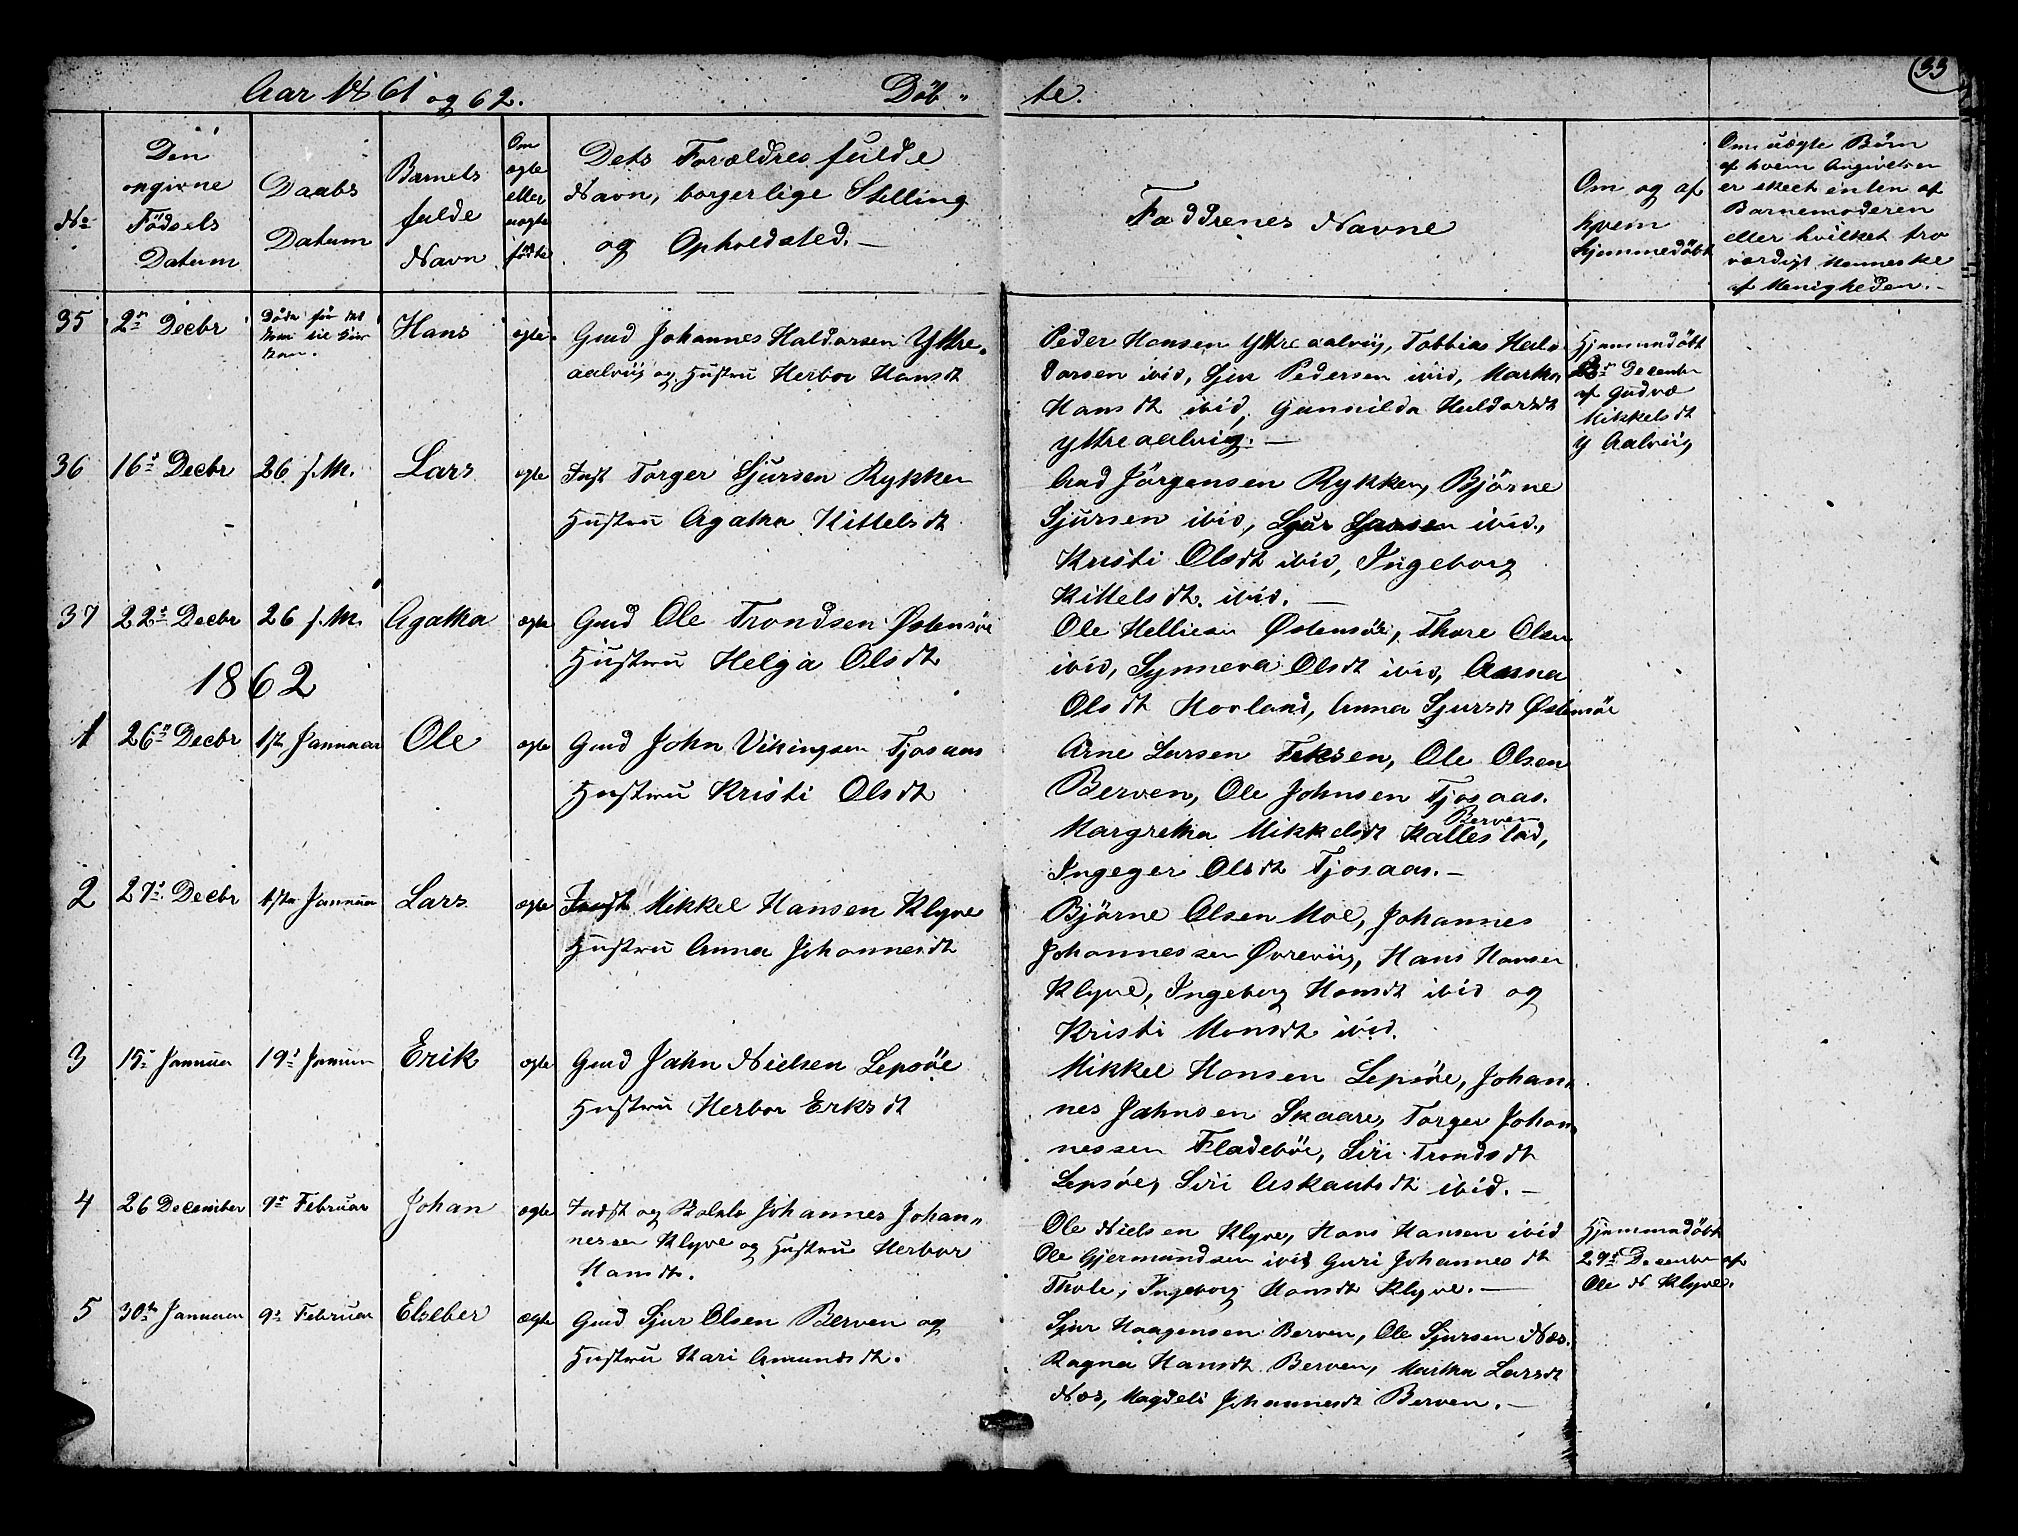 33
Aar 1861 og 62. Döb-te.
No
Den opgivne Födsels Datum
Daabs Datum
Barnets fulde Navn
Om ægte eller uægte födte
Dets Forældres fulde Navn, borgerlige Stilling og Opholdsted.-
Faddrenes Navne
Om og af hvem hjemmedöbt
Om uægte Börn af hvem Angivelsen er skeet enten af Barnemoderen eller hvilket troværdigt Menneske af Menigheden.-
35 2n Decbr Döde för det kom til Kirken. Hans ægte. Gmd Johannes Haldorsen Yttre-
aalviig og Hustru Herbor Hansdt
Peder Hansen Yttreaalviig, Tobbias Hal-
dorsen ibid, Sjur Pedersen ibid, Martha
Hansdt ibid, Gunnilda Haldorsdt
Yttreaalvig.-
Hjemmedöbt
Decembr
af Gudvæ
Mikkelsdt
Y Aalviig
36 16n Decbr 26 s.M. Lars ægte Inst Torger Sjursen Rykken
Hustru Agatha Kittelsdt
Aad Jörgensen Rykken, Björne
Sjursen ibid, Sjur Larsen ibid.,
Kristi Olsdt ibid, Ingeborg
Kittelsdt. ibid.-
37 22n Decbr 26 s.M. Agatha ægte Gmd Ole Trondsen Östensöe
Hustru Helga Olsdt
Ole Helliesen Östensöe, Thore Olsen
ibid, Synneva Olsdt ibid, Anna
Olsdt Hovland, Anna Sjursdt Östensöe
1862
1 26n Decbr 1ste Januar Ole ægte Gmd John Vikingsen Tjosaas
Hustru Kristi Olsdt
Arne Larsen Teksen, Ole Olsen
Berven, Ole Johnsen Tjosaas.
Berven
Margretha Mikkelsdt Kallestad,
Ingeger Olsdt Tjosaas.-
2 27n Decbr 1ste Januar Lars ægte Indst Mikkel Hansen Klyve
Hustru Anna Johannesdt
Björne Olsen Moe, Johannes
Johannessen Övreviig, Hans Hansen
Klyve, Ingeborg Hansdt ibid og
Kristi Monsdt ibid.
3 15n Januar 19n Januar Erik ægte Gmd Jahn Nielsen Lepsöe
Hustru Herbor Eriksdt
Mikkel Hansen Lepsöe, Johan-
nes Jahnsen Skaare, Torger Johan-
nessen Fladeböe, Siri Trondsdt
Lepsöe, Siri Askautsdt ibid.-
4 26 December 9n Februar Johan ægte Indst og Johannes Johan-
nessen Klyve og Hustru Herbor
Hansdt.
Ole Nielsen Klyve, Hans Hansen ibid
Ole Gjermundsen ibid Guri Johannesdt
Thole, Ingeborg Hansdt Klyve.-
Hjemmedöbt
29n December af
Ole N Klyve.
5 30te Januar 9n Februar Elseber ægte Gmd Sjur Olsen Berven og
Hustru Kari Amundsdt.
Sjur Haagensen Berven, Ole Sjursen Næs.
Ragna Hansdt Berven, Martha Larsdt
Næs, Magdeli Johannesdt Berven.-